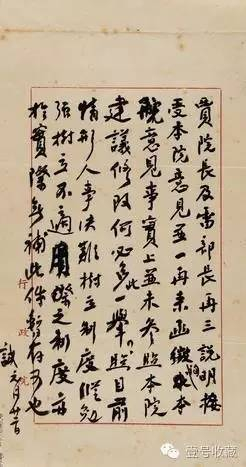 賈院長及雷部長再三說明接
受本院意見並一再来函徵求本
院意見事實上並未參照本院
建議修改何必多此一舉照目前
情形人事決難樹立制度縱勉
强樹立不適用際之制度亦
於實際無補此件暫存可也
誠
行政院
壹号收藏